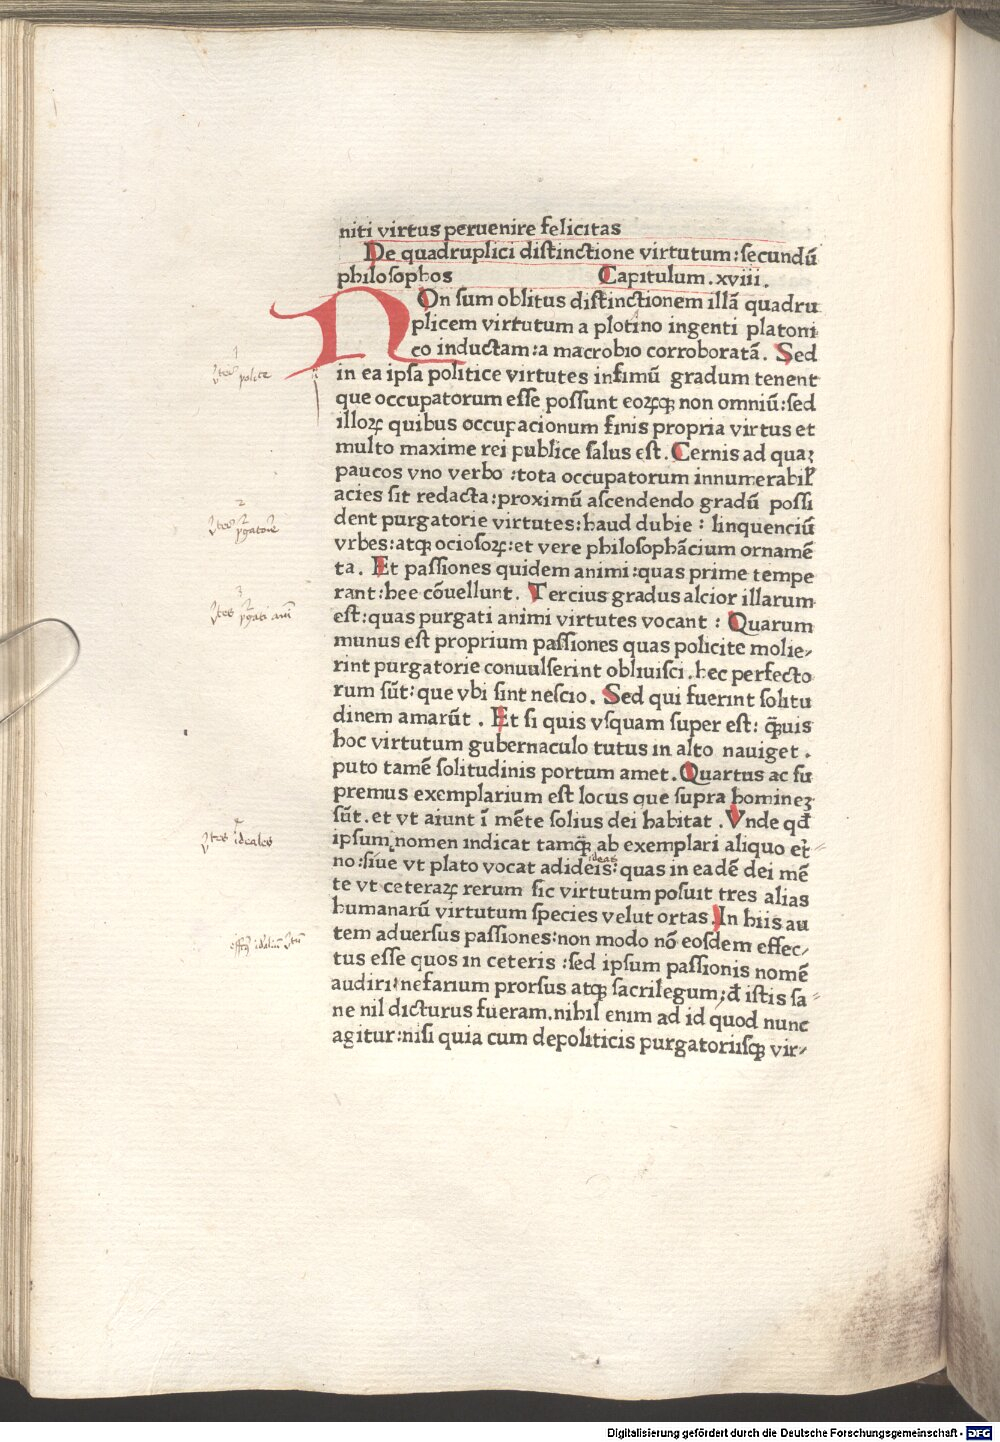 niti virtus peruenire felicitas
De quadruplici distinctione virtutum:secundū
philosophos Capitulum.xviii.
NOn sum oblitus distinctionem illā quadru
plicem virtutum a plotino ingenti platoni
co inductam:a macrobio corroboratā. Sed
in ea ipsa politice virtutes infimū gradum tenent
que occupatorum esse possunt eoꝝqꝫ non omniū:sed
illoꝝ quibus occupacionum finis propria virtus et
multo maxime rei publice salus est. Cernis ad quaꝫ
paucos vno verbo :tota occupatorum innumerabil̕
acies sit redacta:proximū ascendendo gradū possi
dent purgatorie virtutes:haud dubie : linquenciū
vrbes:atqꝫ ociosoꝝ:et vere philosophācium ornamē
ta. Et passiones quidem animi:quas prime tempe
rant:hee cōuellunt. Tercius gradus alcior illarum
est:quas purgati animi virtutes vocant : Quarum
munus est proprium passiones quas policite molie/
rint purgatorie conuulserint obliuisci.hec perfecto
rum sūt:que vbi sint nescio. Sed qui fuerint solitu
dinem amarūt . Et si quis vsquam super est: q̄uis
hoc virtutum gubernaculo tutus in alto nauiget .
puto tamē solitudinis portum amet. Quartus ac su
premus exemplarium est locus que supra homineꝫ
sūt.et vt aiunt ī mēte solius dei habitat . Vnde qđ
ipsum nomen indicat tamq̄ ab exemplari aliquo et̕
no:siue vt plato vocat adideis:quas in eadē dei mē
te vt ceteraꝝ rerum sic virtutum posuit tres alias
humanarū virtutum species velut ortas.In hiis au
tem aduersus passiones:non modo nō eosdem effec/
tus esse quos in ceteris :sed ipsum passionis nomē
audiri nefarium prorsus atqꝫ sacrilegum;đ istis sa
ne nil dicturus fueram.nihil enim ad id quod nunc
agitur:nisi quia cum depoliticis purgatoriisqꝫ vir/
1
2
3
4
ideales
ideas
Digitalisierung gefördert durch die Deutsche Forschungsgemeinschaft - DFG